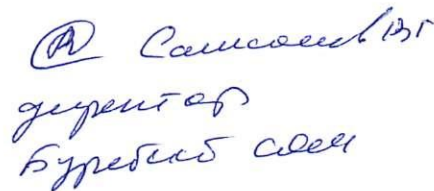 Самсонов ВГ
директор
Буретский сдк